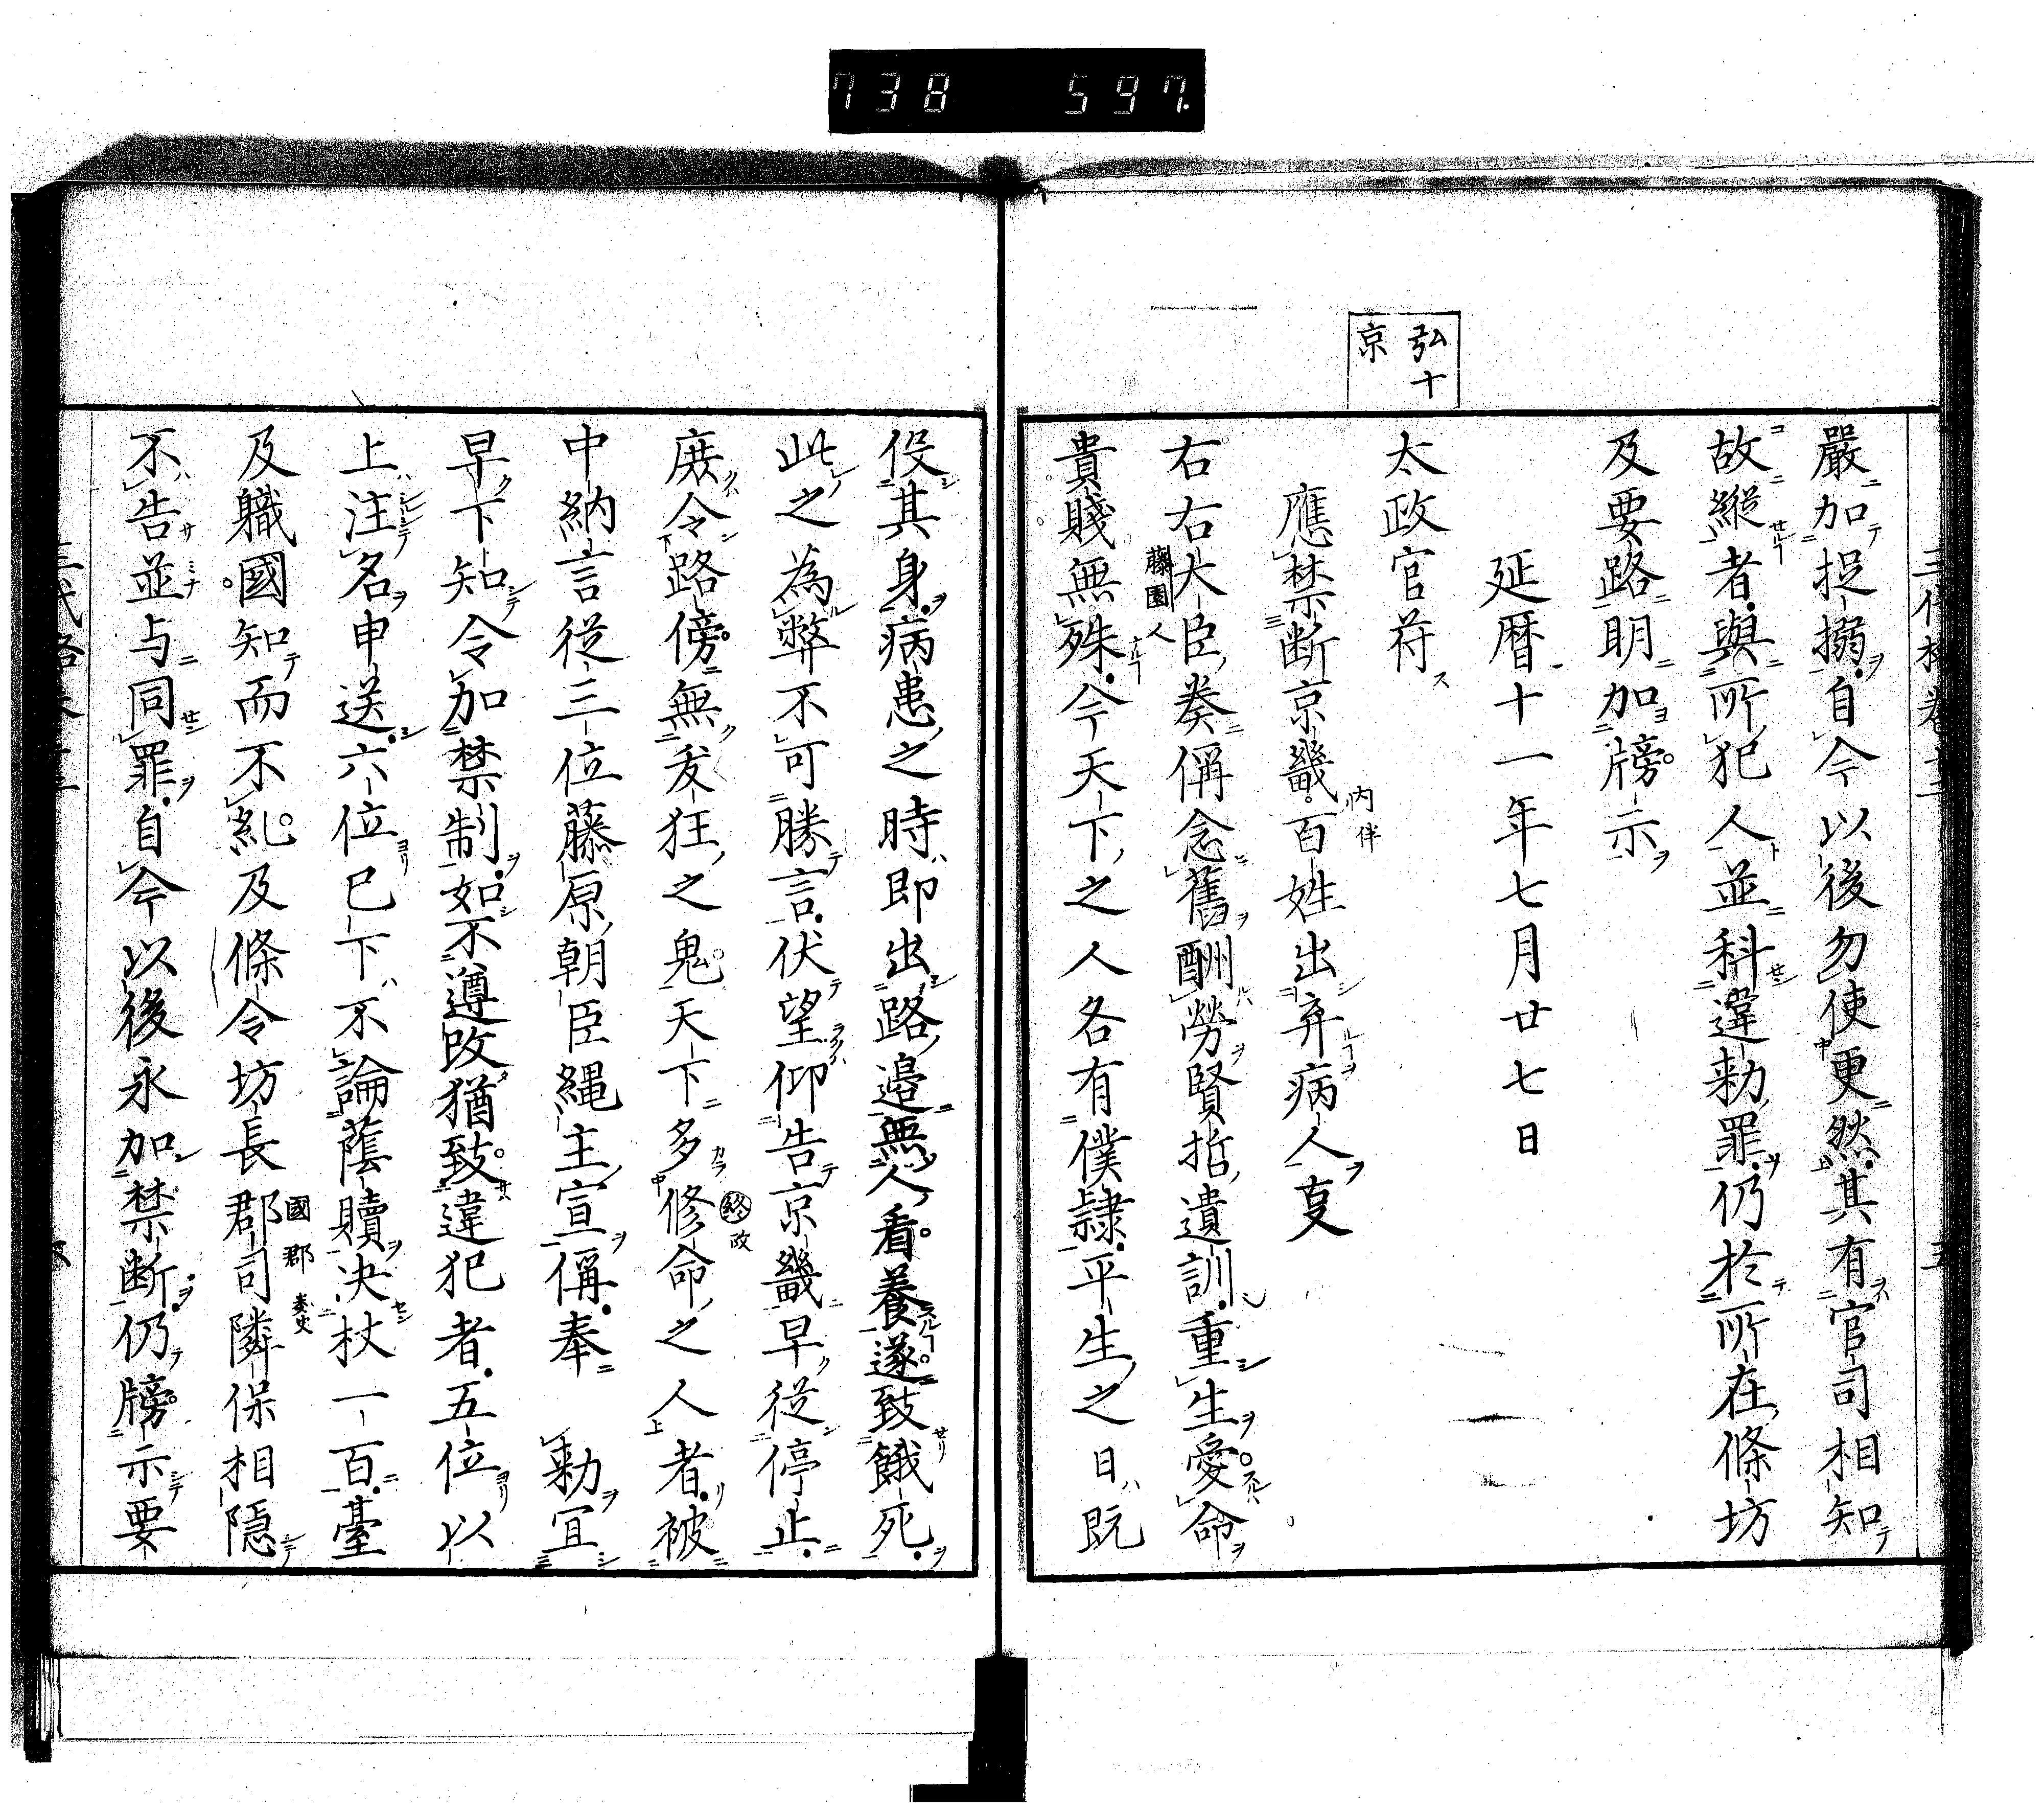 738 597
弘十
京
嚴加捉搦自今以後勿使更然其有官司相知
故縱者與所犯人並科違勅罪仍於所在條坊
及要路明加牓示
延暦十一年七月廿七日
太政官符
應禁断京畿百姓出弃病人事
右右大臣奏偁念舊酬勞賢哲遺訓重生愛命
貴賤無殊今天下之人各有僕隷平生之日既
役其身病患之時即出路邊無人看養遂致餓死
此之為弊不可勝言伏望仰告京畿早従停止
庶令路傍無友狂之鬼天下多修命之人者被
中納言従三位藤原朝臣縄主宣偁奉 勅宜
早下知令加禁制如不遵改猶致違犯者五位以
上注名申送六位已下不論蔭贖决杖一百臺
及職國知而不糺及條令坊長郡司隣保相隠
不告並与同罪自今以後永加禁断仍牓示要